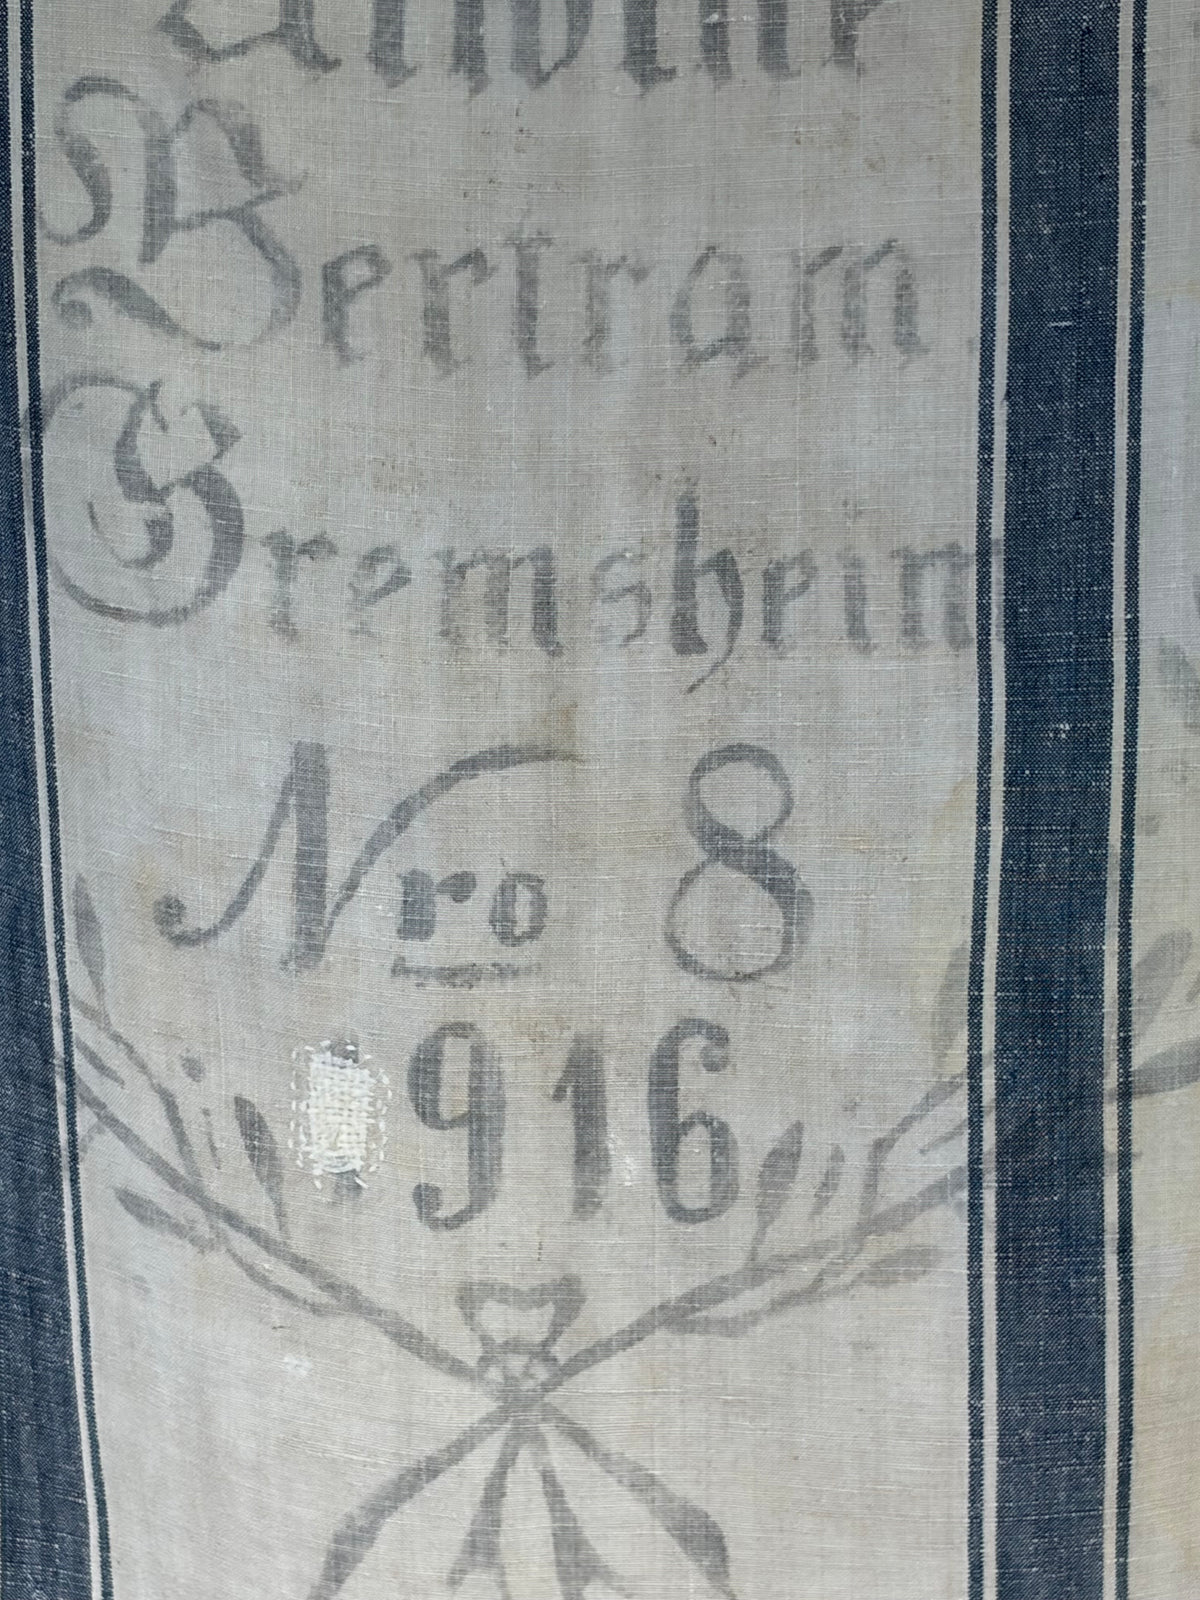 Bertram
Gremsheim
Nro 8
916